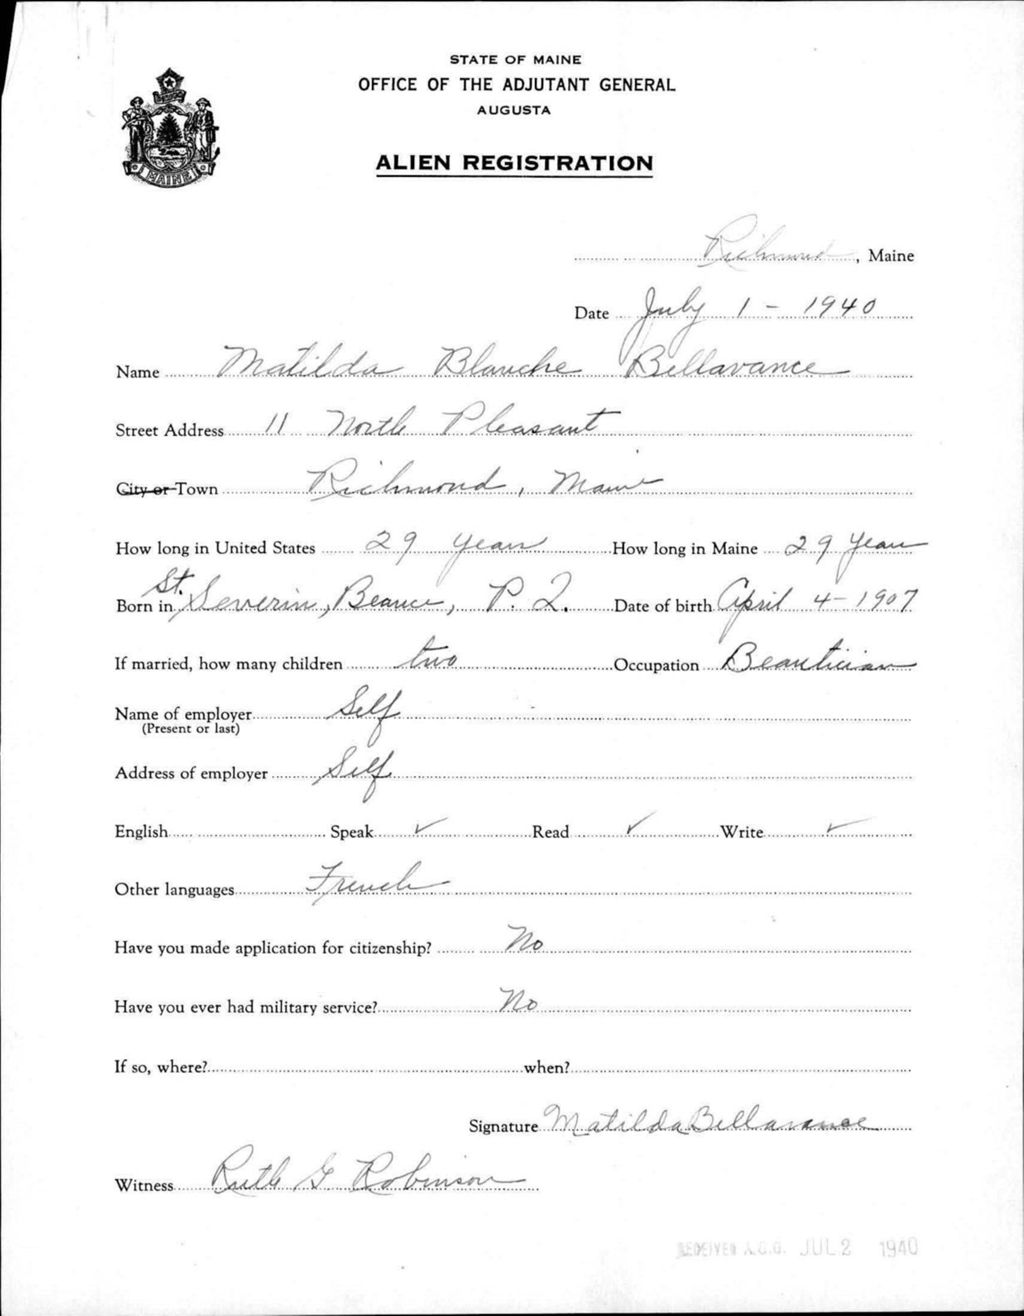 STATE OF MAINE
OFFICE OF THE ADJUTANT GENERAL
AUGUSTA
ALIEN REGISTRATION
MAINE
Richmond, Maine
Date July 1 - 1940
Name Matilda Blanche Bellavance
Street Address 11 North Pleasant
City or Town Richmond, Maine
How long in United States 29 years How long in Maine 29 years
Born in St. Severin, Beauce, P. Q. Date of birth April 4 - 1907
If married, how many children two Occupation Beautician
Name of employer Self
(Present or last)
Address of employer Self
English Speak ✓ Read ✓ Write ✓
Other languages French
Have you made application for citizenship? No
Have you ever had military service? No
If so, where? when?
Signature Matilda Bellavance
Witness Ruth G Robinson
RECEIVED A.G.O. JUL 2 1940